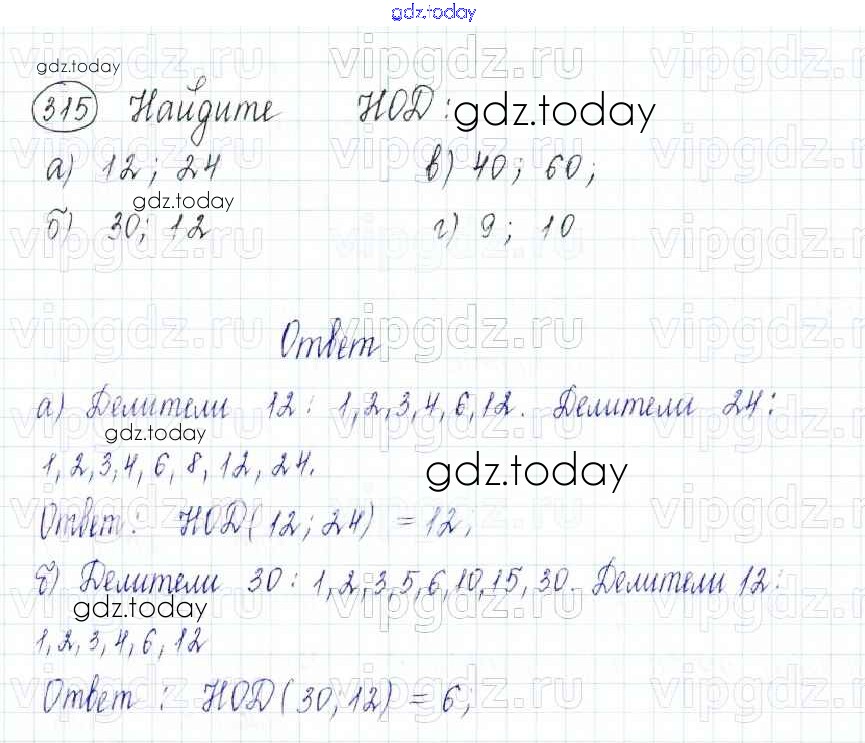 gdz.today
gdz.today
315 Найдите НОД: gdz.today
а) 12; 24 в) 40; 60;
gdz.today
б) 30; 12 г) 9; 10
Ответ
а) Делители 12: 1,2,3,4,6,12. Делители 24:
gdz.today
1,2,3,4,6,8,12,24.
gdz.today
Ответ: НОД(12;24) = 12;
б) Делители 30: 1,2,3,5,6,10,15,30. Делители 12:
gdz.today
1,2,3,4,6,12
Ответ: НОД(30;12) = 6;
vipgdz.ru